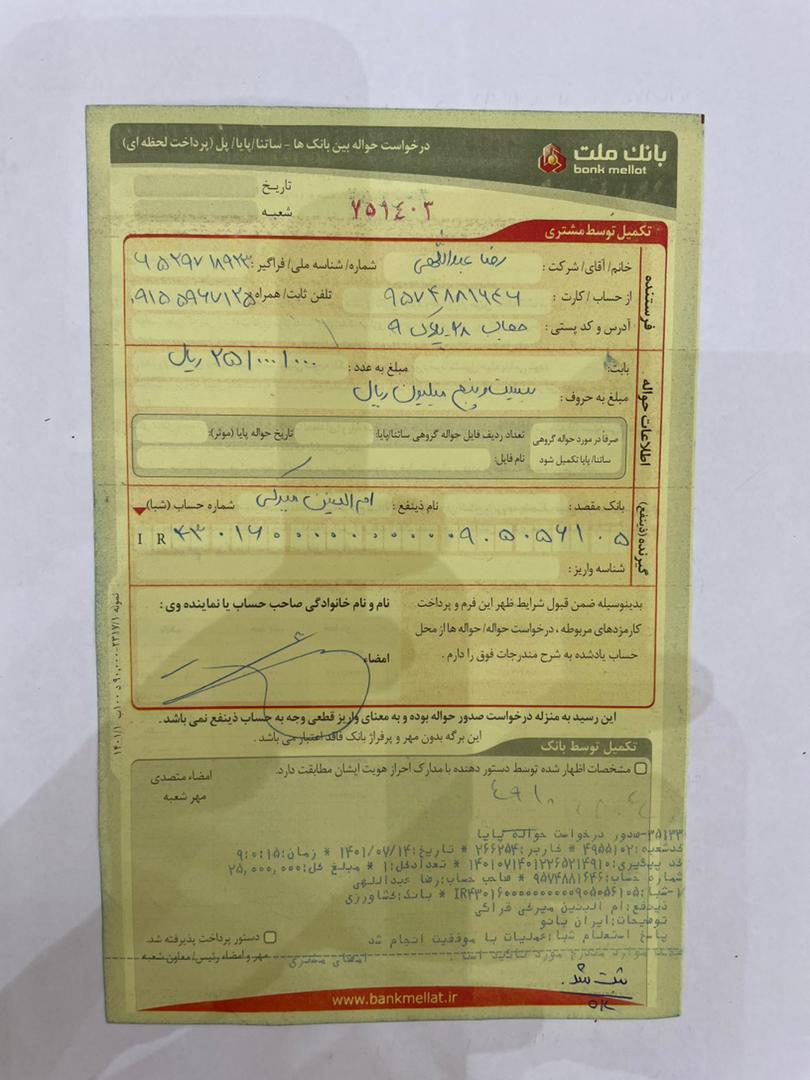 بانک ملت
bank mellat
درخواست حواله بین بانک ها - ساتنا/پایا/ پل (پرداخت لحظه ای)
تاریخ
شعبه
۷۵۹۴۰۳
تکمیل توسط مشتری
فرستنده
خانم/ آقای/ شرکت: رضا عبداللهی شماره/ شناسه ملی/ فراگیر:
از حساب/ کارت: ۹۵۷۴۸۸۱۶۴۶ تلفن ثابت/ همراه:
آدرس و کد پستی: حجاب ۲۸ پلاک ۹
اطلاعات حواله
بابت: مبلغ به عدد: ۲۵/۰۰۰/۰۰۰ ریال
مبلغ به حروف: بیست و پنج میلیون ریال
صرفاً در مورد حواله گروهی تعداد ردیف فایل حواله گروهی ساتنا/پایا: تاریخ حواله پایا (موثر):
ساتنا/ پایا تکمیل شود نام فایل:
گیرنده (ذینفع)
بانک مقصد: نام ذینفع: ام البنین میرکی شماره حساب (شبا)
I R ۴۳ ۰۱۶۰ ۰۰۰۰ ۰۰۰۰ ۰۹۰۵ ۰۵۶۱ ۰۵
شناسه واریز:
بدینوسیله ضمن قبول شرایط ظهر این فرم و پرداخت
کارمزدهای مربوطه، درخواست حواله/ حواله ها از محل
حساب یادشده به شرح مندرجات فوق را دارم.
نام و نام خانوادگی صاحب حساب یا نماینده وی:
امضاء
این رسید به منزله درخواست صدور حواله بوده و به معنای واریز قطعی وجه به حساب ذینفع نمی باشد.
این برگه بدون مهر و پرفراژ بانک فاقد اعتبار می باشد.
تکمیل توسط بانک
مشخصات اظهار شده توسط دستور دهنده با مدارک احراز هویت ایشان مطابقت دارد.
امضاء متصدی
مهر شعبه
صدور درخواست حواله پایا
کدشعبه:۴۹۵۵۱۰۲ * کاربر:۲۶۶۲۵۴ * تاریخ:۱۴۰۱/۰۷/۱۴ * زمان:۹:۰:۱۵
کد پیگیری:۱۴۰۱۰۷۱۴۰۱۲۲۶۵۲۱۴۹۱۰ * تعدادکل:۱ * مبلغ کل:۲۵,۰۰۰,۰۰۰
شماره حساب:۹۵۷۴۸۸۱۶۴۶ * صاحب حساب:رضا عبداللهی
۱-شبا:IR۴۳۰۱۶۰۰۰۰۰۰۰۰۰۰۹۰۵۰۵۶۱۰۵ * بانک:کشاورزی
ذینفع:ام البنین میرکی قراکی
توضیحات:ایران بانو
پاسخ استعلام شبا:عملیات با موفقیت انجام شد
امضای مشتری
دستور پرداخت پذیرفته شد.
مهر و امضاء رئیس/ معاون شعبه
ثبت شد.
www.bankmellat.ir